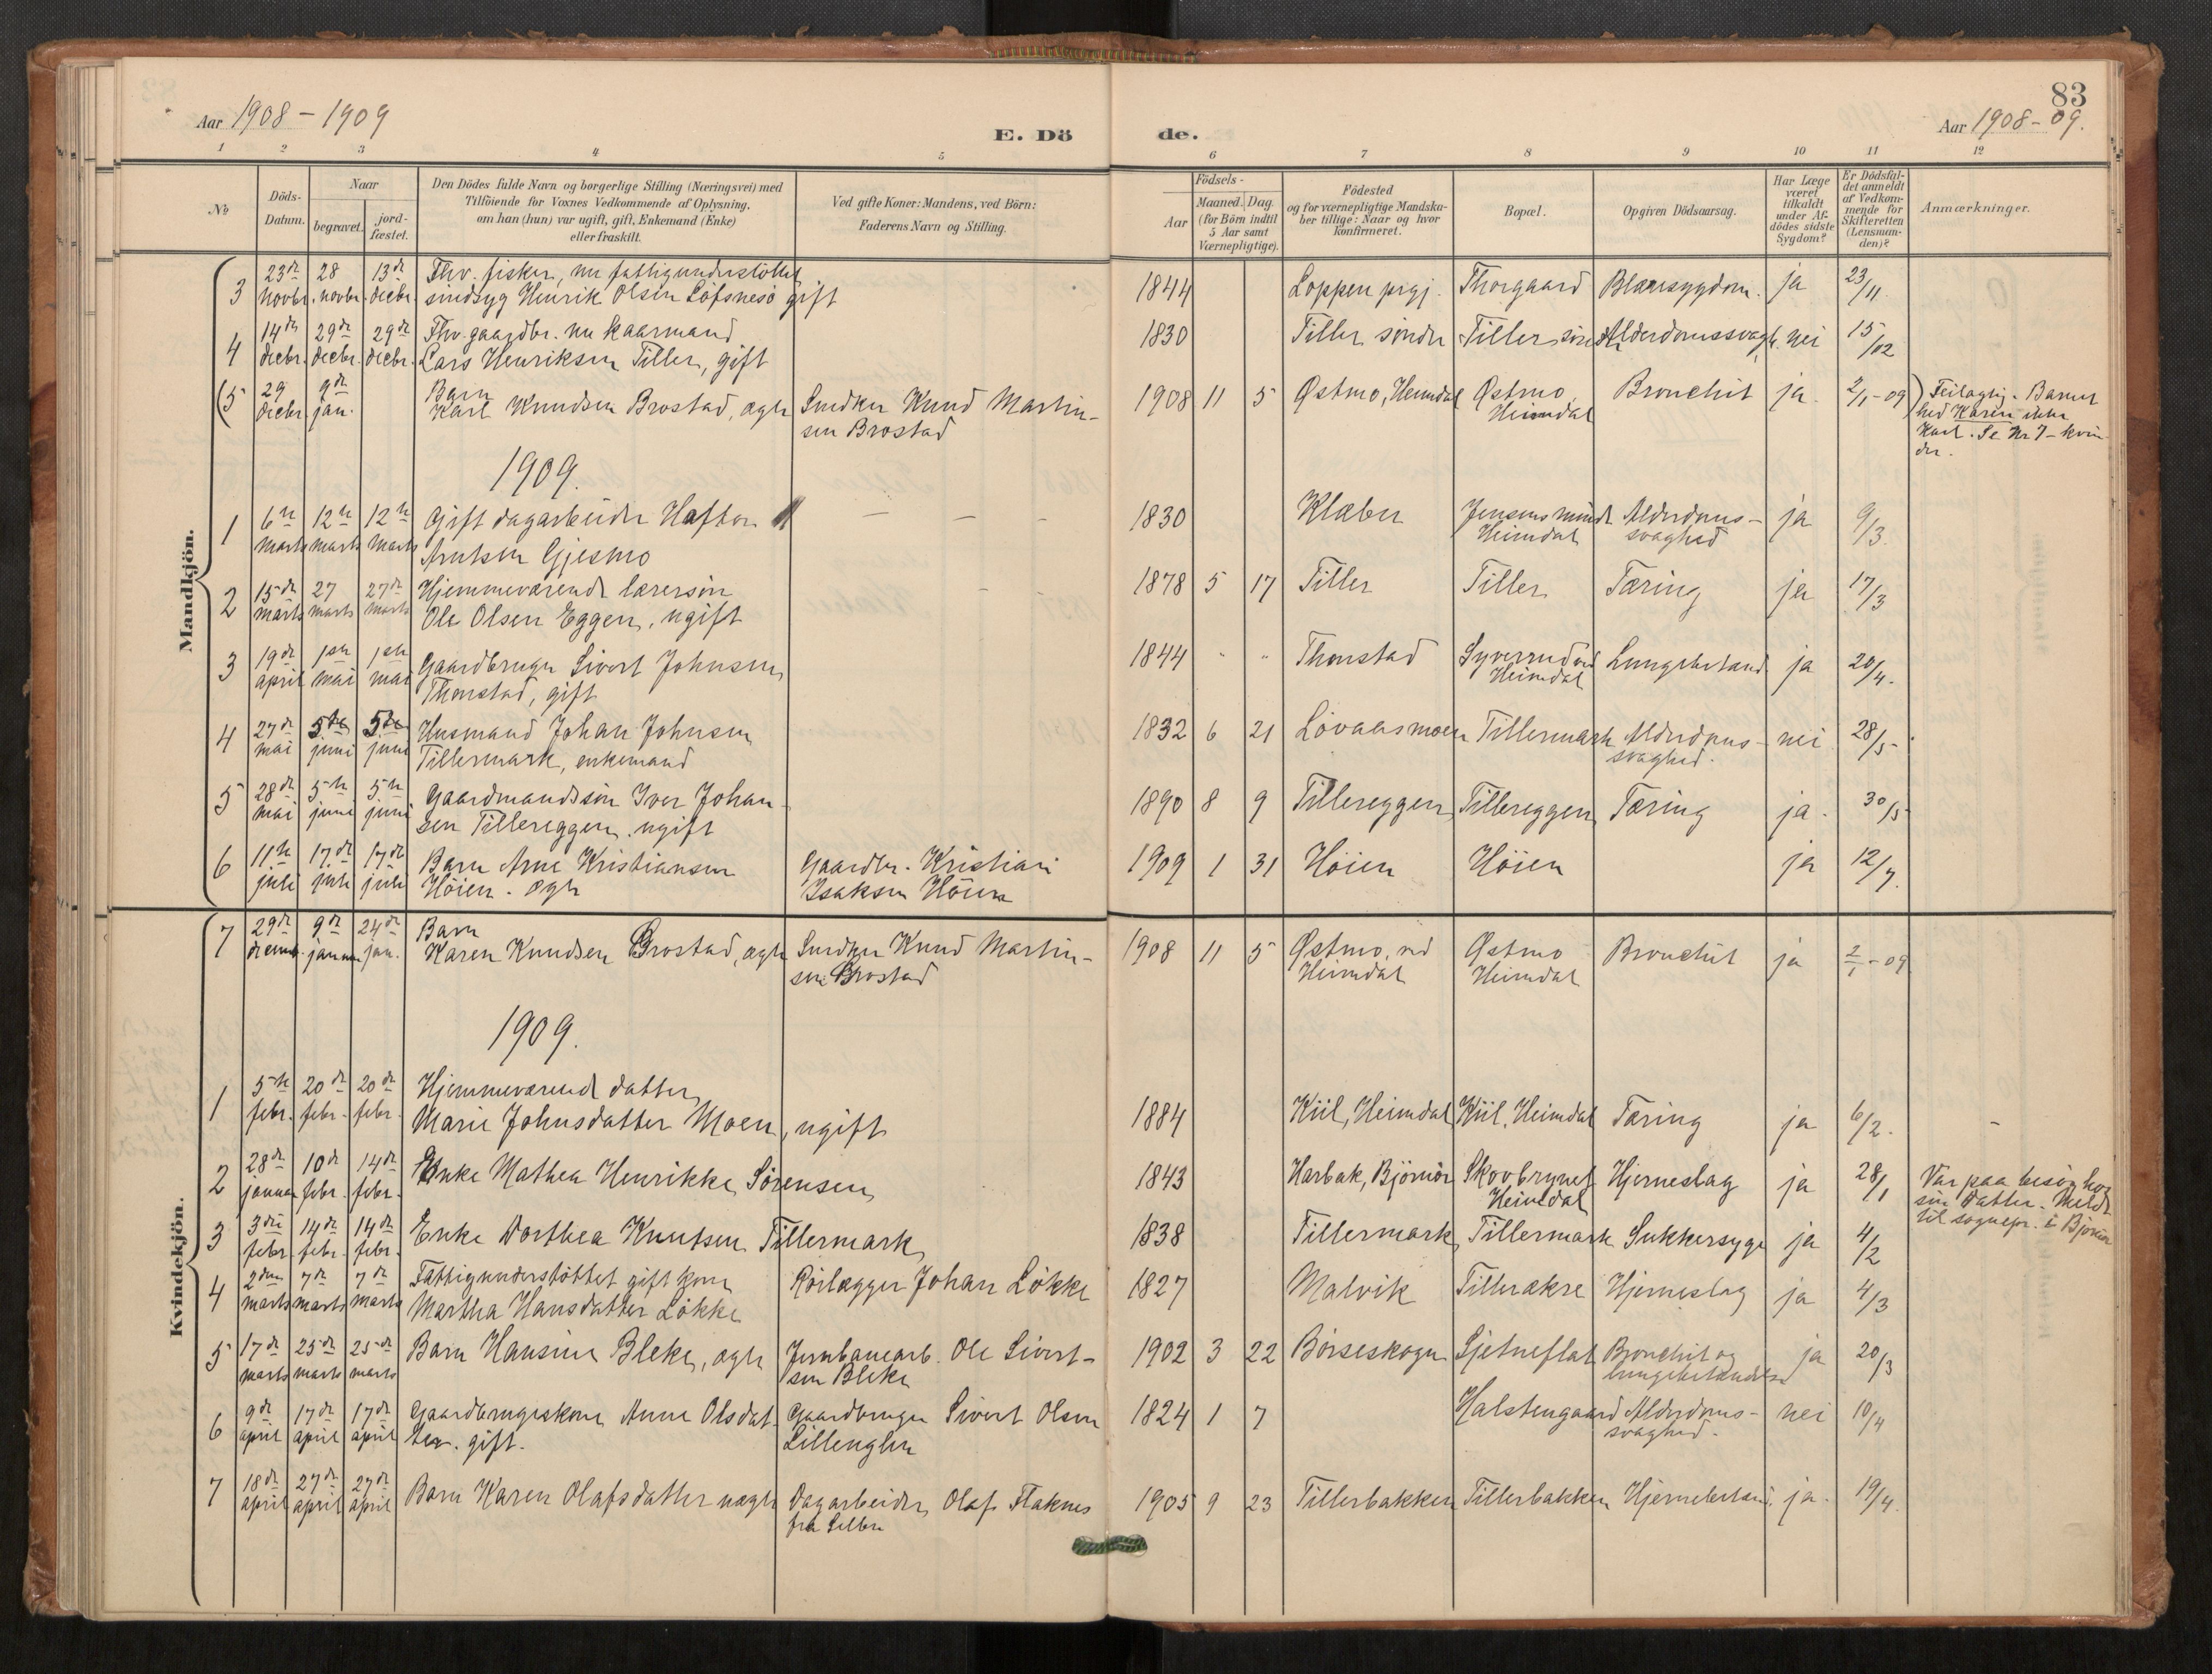 83
Aar 1908-1909
E. Dö
de.
Aar 1908-09.
1 2 3 4 5 6 7 8 9 10 11 12
No
Döds-
Datum.
Naar
begravet.
jord-
fæstet.
Den Dödes fulde Navn og borgerlige Stilling (Næringsvei) med
Tilföiende for Voxnes Vedkommende af Oplysning,
om han (hun) var ugift, gift, Enkemand (Enke)
eller fraskilt.
Ved gifte Koner: Mandens, ved Börn:
Faderens Navn og Stilling.
Födsels-
Aar
Maaned. Dag.
(for Börn indtil
5 Aar samt
Værnepligtige).
Födested
og for værnepligtige Mandska-
ber tillige: Naar og hvor
konfirmeret.
Bopæl.
Opgiven Dödsaarsag.
Har Læge
været
tilkaldt
under Af-
dödes sidste
Sygdom?
Er Dödsfal-
det anmeldt
af Vedkom-
mende for
Skifteretten
(Lensman-
den)?
Anmærkninger.
Mandkjön.
3 23de 28 13de Fhv. fisker, nu fattigunderstöttet 1844 Loppen prgj. Thorgaard Blæresygdom. ja 23/11
novbr. novbr. decbr. sindsyg Henrik Olsen Löfsnesö gift
4 14de 29de 29de Fhv. gaardbr. nu kaarmand 1830 Tiller söndre Tiller söndre Alderdomssvagh. nei 15/12
decbr. decbr. decbr. Lars Henriksen Tiller, gift
(5 29 9de Barn
decbr. jan. Karl Knudsen Brostad, ægte Snedker Knud Martin- 1908 11 5 Østmo, Heimdal Østmo, Bronchit ja 2/1-09) Feilagtig. Barnet
sen Brostad Heimdal hed Karen ikke
Karl. Se Nr 7 - kvin-
der.
1909.
1 6te 12te 12te Gift dagarbeider Haftor — — — 1830 Klæbu Jensens minde Alderdoms- ja 9/3
marts marts marts Arntsen Gjesmo Heimdal svaghed
2 15de 27 27de Hjemmeværende lærersön 1878 5 17 Tiller Tiller Tæring ja 17/3
marts marts marts Ole Olsen Eggen, ugift
3 19de 1ste 1ste Gaardbruger Sivert Johnsen 1844 " " Thonstad Syverrud ved Lungebetænd ja 20/4.
april mai mai Thonstad, gift Heimdal
4 27de 5te 5te Husmand Johan Johnsen 1832 6 21 Lövaasmoen Tillermark Alderdoms- nei 28/5
mai juni juni Tillermark, enkemand svaghed.
5 28de 5te 5te Gaardmandssön Iver Johan- 1890 8 9 Tillereggen Tillereggen Tæring ja. 30/5
mai juni juni sen Tillereggen. ugift
6 11te 17de 17de Barn Arne Kristiansen Gaardbr. Kristian 1909 1 31 Höien Höien ja 12/7.
juli juli juli Höien. ægte Isaksen Höien
Kvindekjön.
7 29de 9de 24de Barn
decemb. januar jan. Karen Knudsen Brostad, ægte Snedker Knud Martin- 1908 11 5 Østmo, ved Østmo Bronchit ja 2/1-09
sen Brostad Heimdal Heimdal
1909.
1 5te 20de 20de Hjemmeværende datter
febr. febr. febr. Marie Johnsdatter Moen, ugift 1884 Kiil, Heimdal Kiil, Heimdal Tæring ja 6/2. -
2 28de 10de 14de Enke Mathea Henrikke Sörensen 1843 Harbak, Björnör Skovbrynet Hjerneslag ja 28/1 Var paa besög hos
januar febr. febr. Heimdal sin datter. Meldt
til sognepr. i Björnör
3 3die 14de 14de Enke Dorthea Knutsen Tillermark 1838 Tillermark Tillermark Sukkersyge ja 4/2
febr. febr. febr.
4 2den 7de 7de Fattigunderstöttet gift kone Rörlægger Johan Lökke 1827 Malvik Tillerækre Hjerneslag ja 4/3
marts marts marts Martha Hansdatter Lökke
5 17de 25de 25de Barn Hansine Bleke, ægte Jernbanearb. Ole Sivert- 1902 3 22 Börseskogn Sjetneflat Bronchit og ja 20/3
marts marts marts sen Bleke lungebetændelse
6 9de 17de 17de Gaardbrugerskone Anne Olsdat- Gaardbruger Sivert Olsen 1824 1 7 Halstengaard Alderdoms- nei 10/4
april april april ter. gift. Lillenglen svaghed.
7 18de 27de 27de Barn Karen Olafsdatter uægte Dagarbeider Olaf Flaknes 1905 9 23 Tillerbakken Tillerbakken Hjernebetænd. ja. 19/4.
april april april fra Selbu